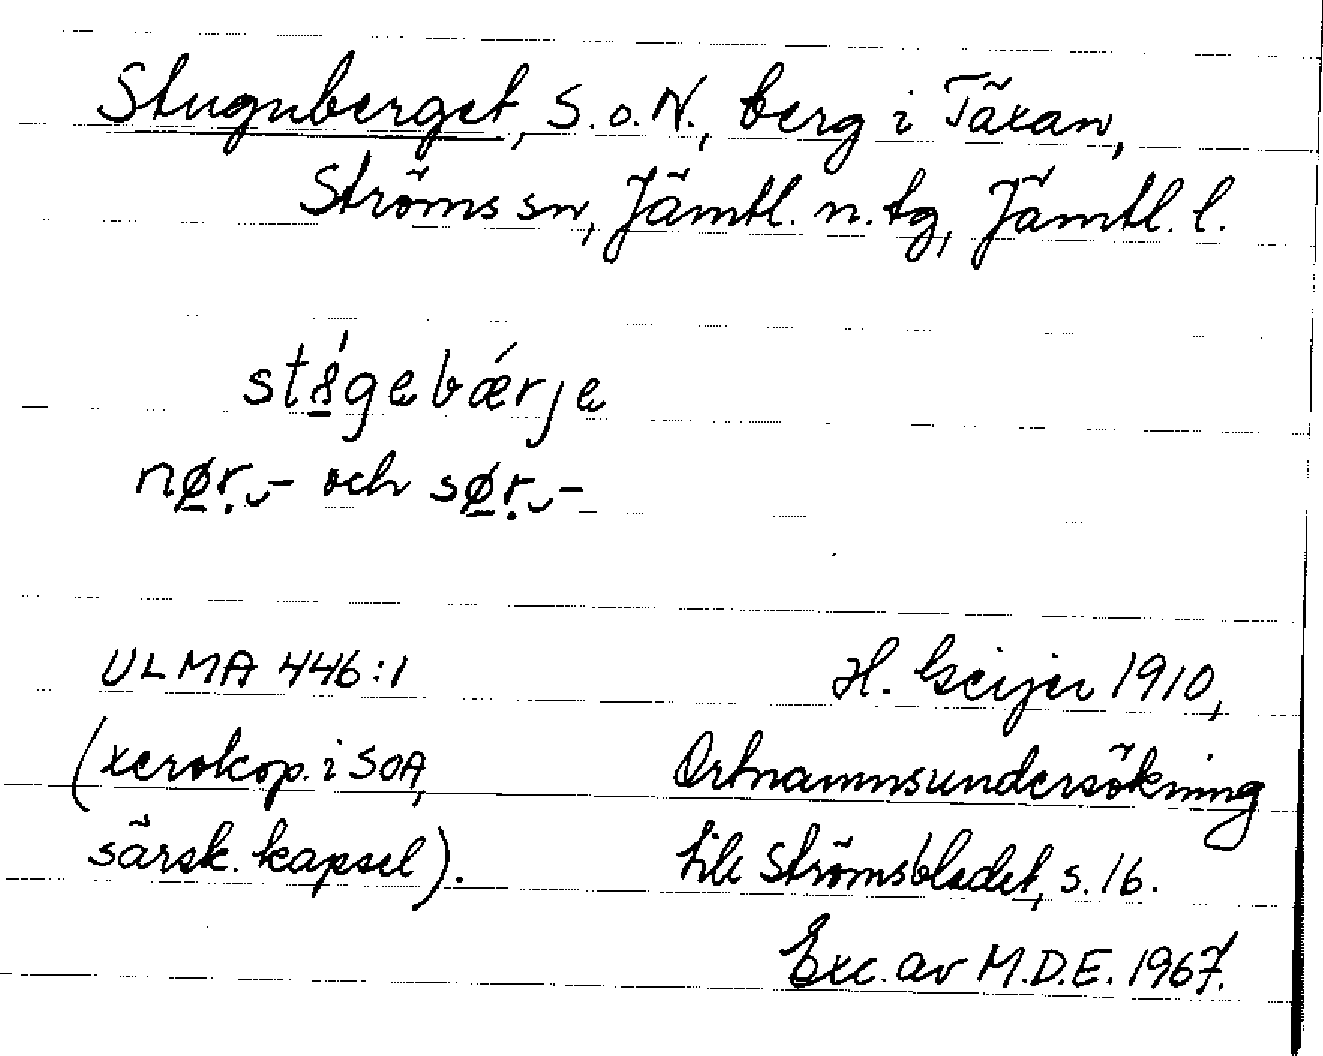 Stugnberget, S. o. N., berg i Täxan,
Ströms sn, Jämtl. n. tg, Jämtl. l.
st8́gebǽrje
nø̲ṛ‿- och sø̲ṛ‿-
ULMA 446:1
(xerokop. i SOA,
särsk. kapsel).
H. Geijer 1910,
Ortnamnsundersökning
till Strömsbladet, s. 16.
Exc. av M.D.E. 1967.